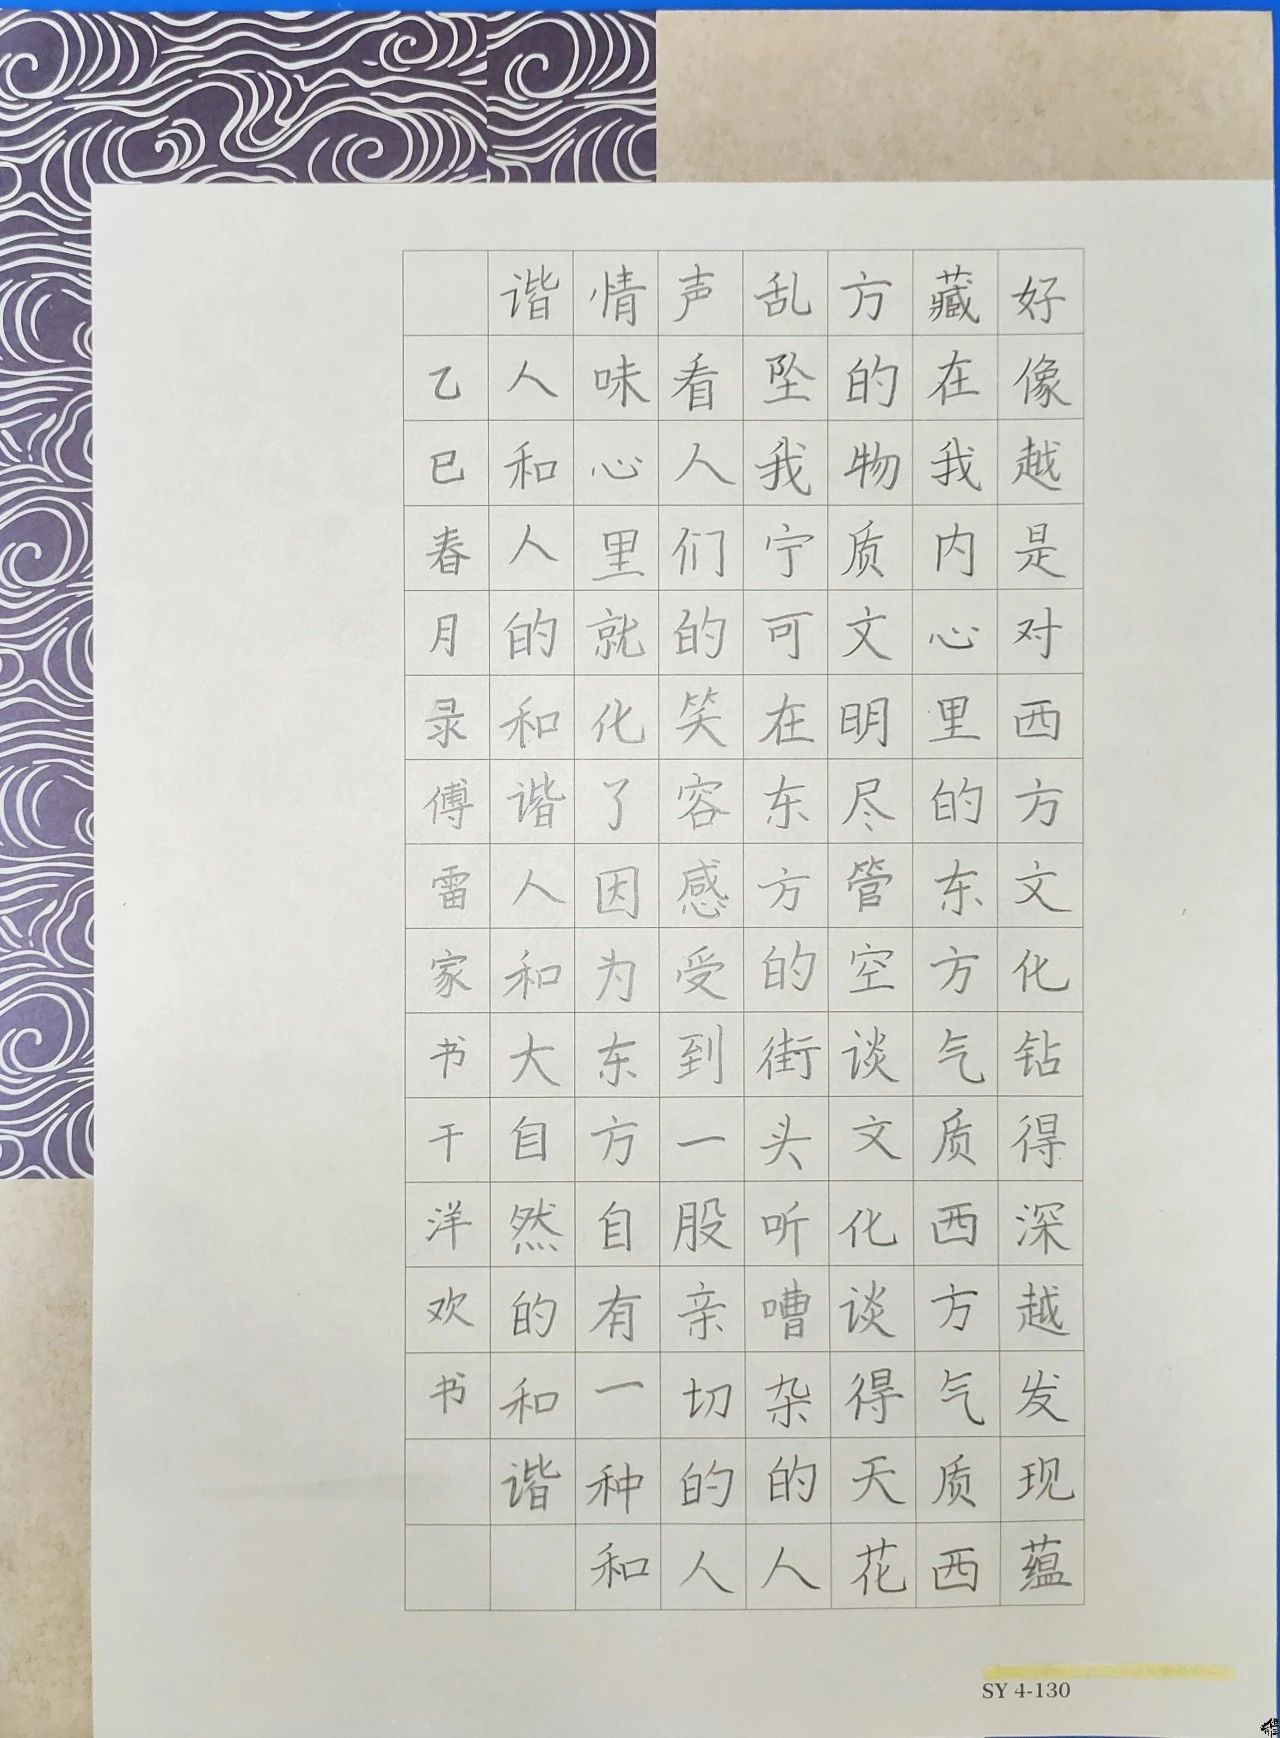 好像越是对西方文化钻得深越发现蕴
藏在我内心里的东方气质西方气质西
方的物质文明尽管空谈文化谈得天花
乱坠我宁可在东方的街头听嘈杂的人
声看人们的笑容感受到一股亲切的人
情味心里就化了因为东方自有一种和
谐人和人的和谐人和大自然的和谐
乙巳春月录傅雷家书于洋欢书
SY 4-130